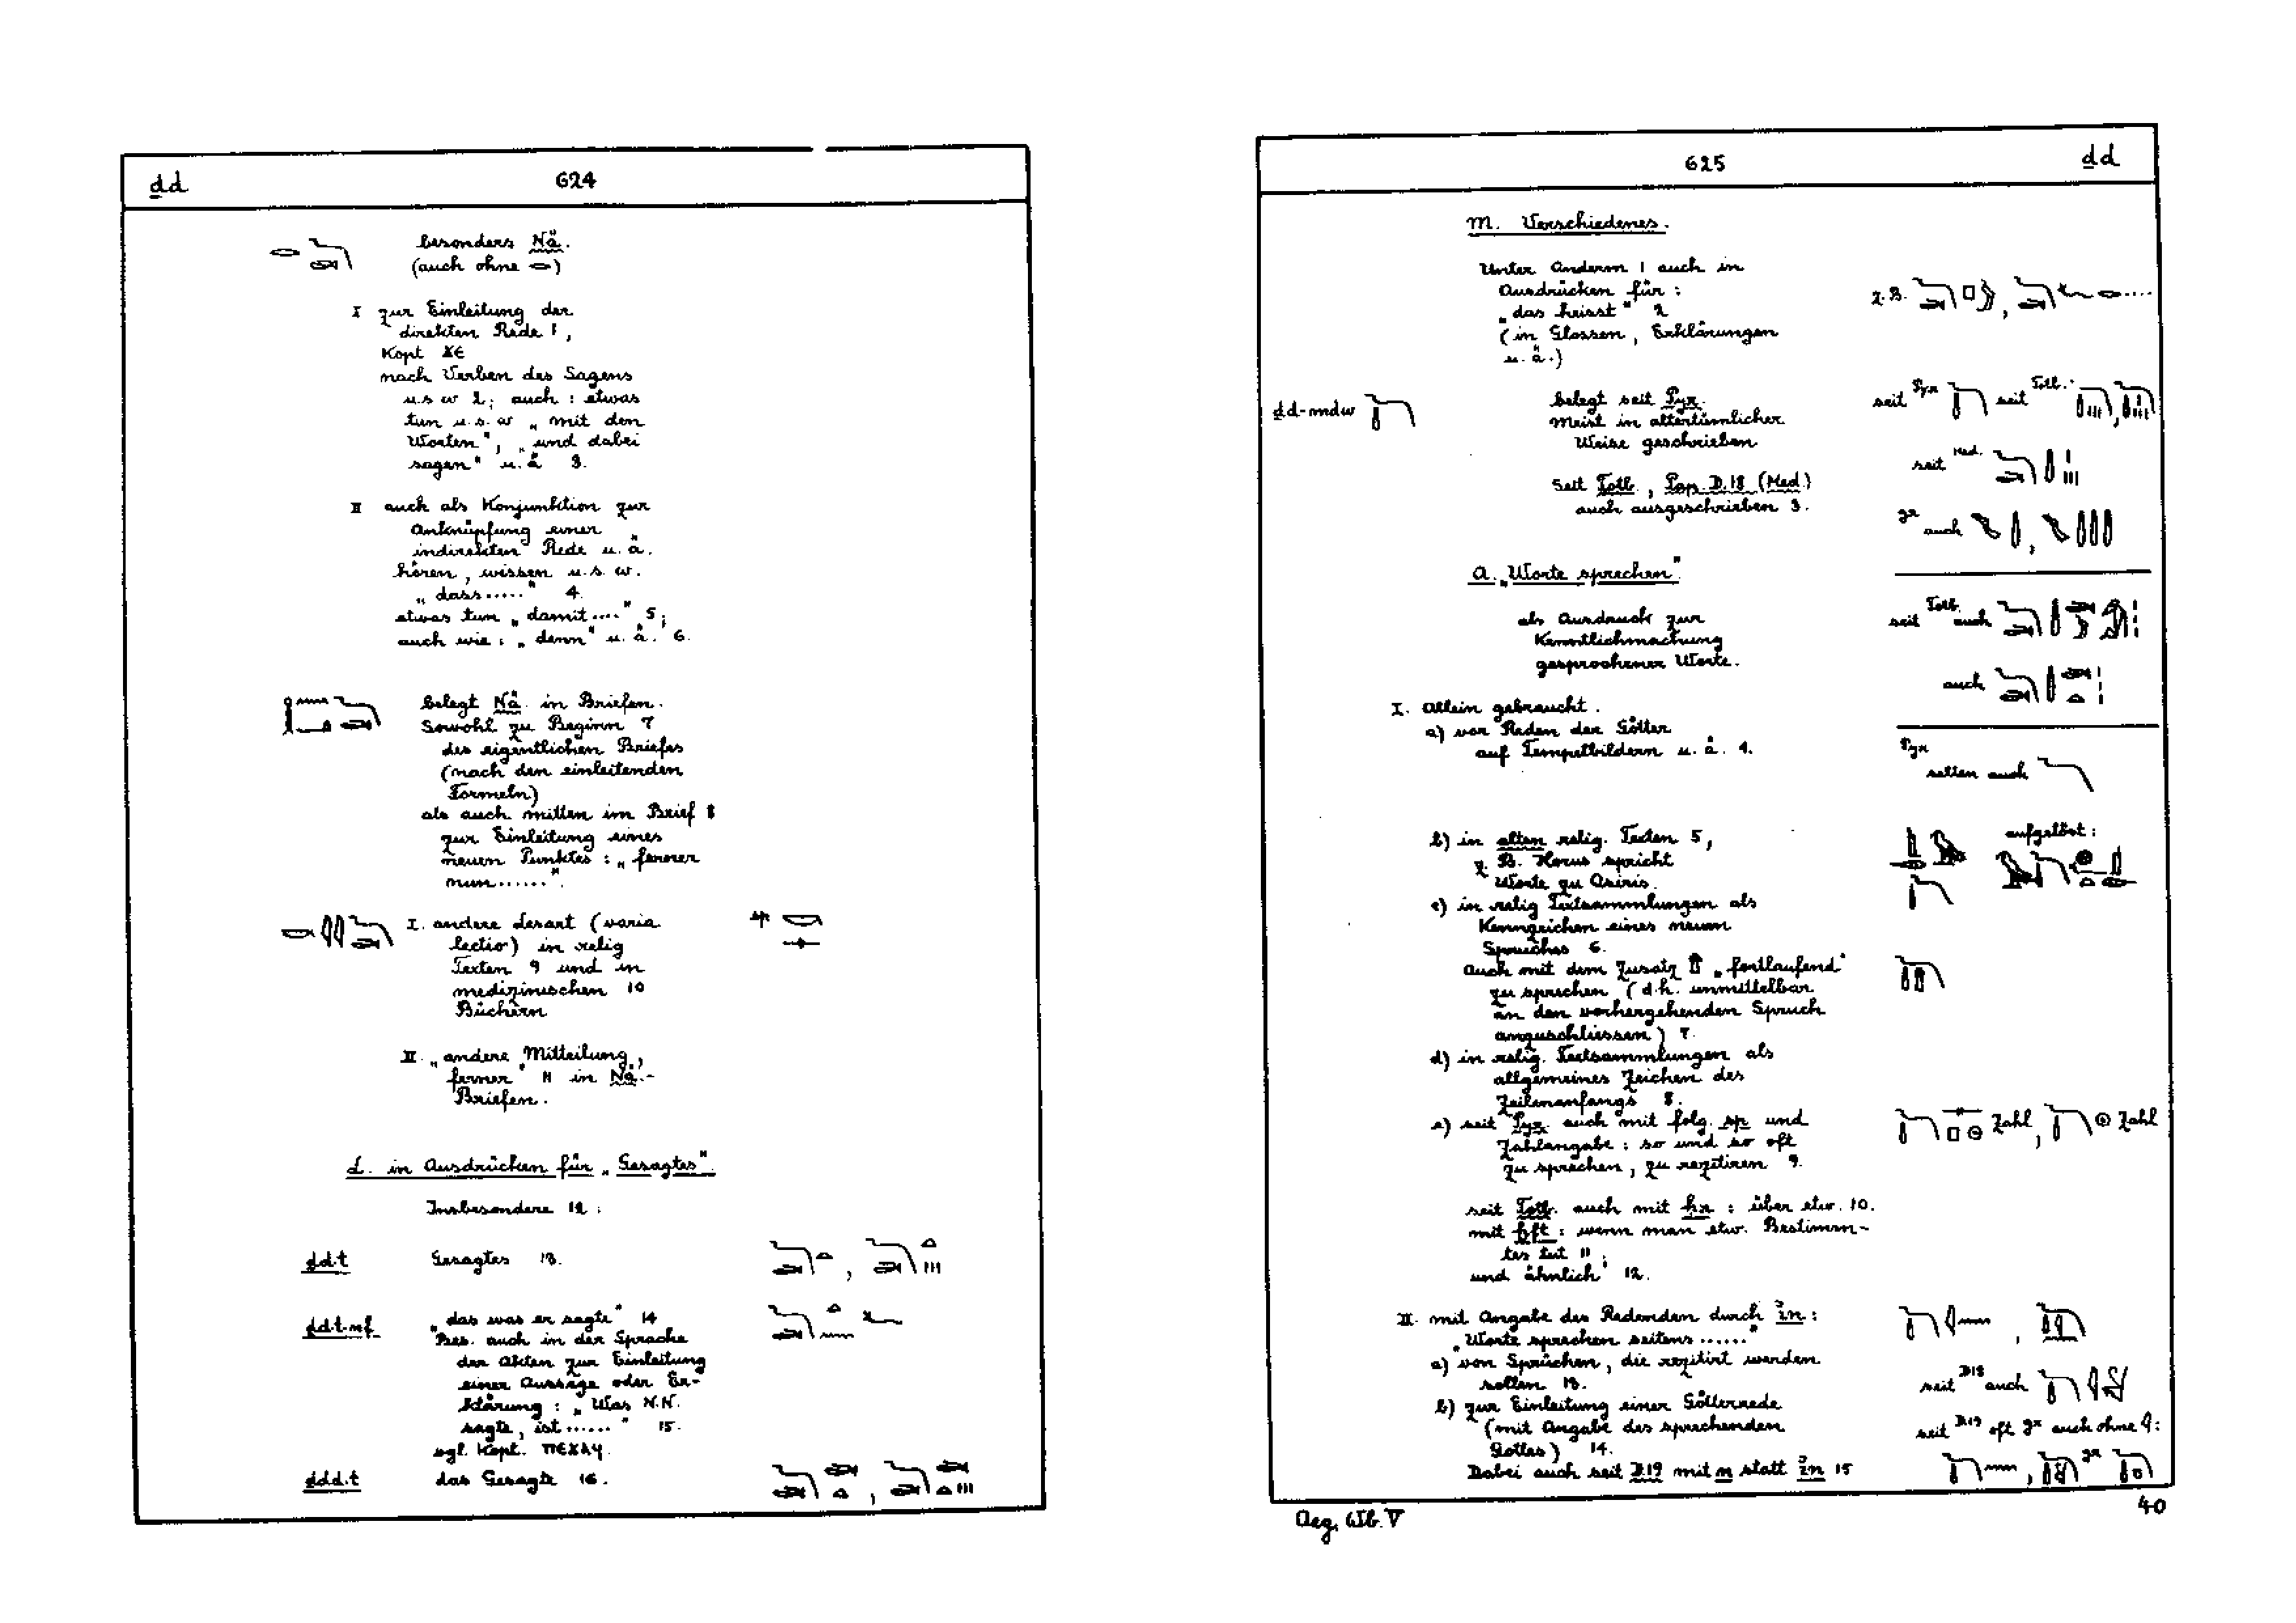 ḏd
624
besonders Nä.
(auch ohne 𓂋)
I zur Einleitung der
direkten Rede 1,
Kopt ϫⲉ
nach Verben des Sagens
u.s.w 2; auch: etwas
tun u.s.w „mit den
Worten", „und dabei
sagen" u.ä 3.
II auch als Konjunktion zur
Anknüpfung einer
indirekten Rede u.ä.
hören, wissen u.s.w.
„dass....." 4.
etwas tun „damit...." 5;
auch wie: „denn" u.ä. 6.
belegt Nä. in Briefen.
Sowohl zu Beginn 7
des eigentlichen Briefes
(nach den einleitenden
Formeln)
als auch mitten im Brief 8
zur Einleitung eines
neuen Punktes: „ferner
nun......".
I. andere Lesart (varia
lectio) in relig
Texten 9 und in
medizinischen 10
Büchern
II. „andere Mitteilung,
ferner" 11 in Nä.-
Briefen.
L. in Ausdrücken für „Gesagtes".
Insbesondere 12:
ḏd.t Gesagtes 13.
ḏd.t.nf „das was er sagte" 14
Bes. auch in der Sprache
der Akten zur Einleitung
einer Aussage oder Er-
klärung: „Was N.N.
sagte, ist......" 15.
vgl. Kopt. ⲡⲉϫⲁϥ.
ḏdd.t das Gesagte 16.
625
ḏd
M. Verschiedenes.
Unter Anderm 1 auch in
Ausdrücken für: z.B.
„das heisst" 2
(in Glossen, Erklärungen
u.ä.)
ḏd-mdw belegt seit Pyr. seit Pyr seit Totb.
Meist in altertümlicher
Weise geschrieben
seit Med.
Seit Totb., Pap. D.18 (Med.)
auch ausgeschrieben 3.
gr auch
A. „Worte sprechen"
als Ausdruck zur seit Totb. auch
Kenntlichmachung
gesprochener Worte.
auch
I. Allein gebraucht.
a) vor Reden der Götter
auf Tempelbildern u.ä. 4.
Pyr
selten auch
b) in alten relig. Texten 5, aufgelöst:
z.B. Horus spricht
Worte zu Osiris.
c) in relig Textsammlungen als
Kennzeichen eines neuen
Spruches 6.
Auch mit dem Zusatz „fortlaufend"
zu sprechen (d.h. unmittelbar
an den vorhergehenden Spruch
anzuschliessen) 7.
d) in relig. Textsammlungen als
allgemeines Zeichen des
Zeilenanfangs 8.
e) seit Pyr. auch mit folg. sp und Zahl, Zahl
Zahlangabe: so und so oft
zu sprechen, zu rezitiren 9.
seit Totb. auch mit ḥr: über etw. 10.
mit ḫft: wenn man etw. Bestimm-
tes tut 11;
und ähnlich 12.
II. mit Angabe des Redenden durch in:
„Worte sprechen seitens......"
a) von Sprüchen, die rezitirt werden
sollen 13. seit D18 auch
b) zur Einleitung einer Götterrede
(mit Angabe des sprechenden seit D.19 oft gr auch ohne 𓇋:
Gottes) 14.
Dabei auch seit D.19 mit n statt in 15 gr
Aeg. Wb. V
40